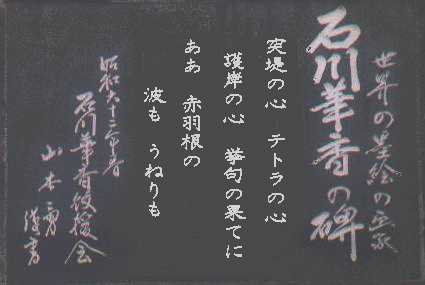 世界の墨絵の画家
石川華香の碑
突堤の心 テトラの心
護岸の心 挙句の果てに
ああ 赤羽根の
波も うねりも
昭和六十三年春
石川華香後援会
山本